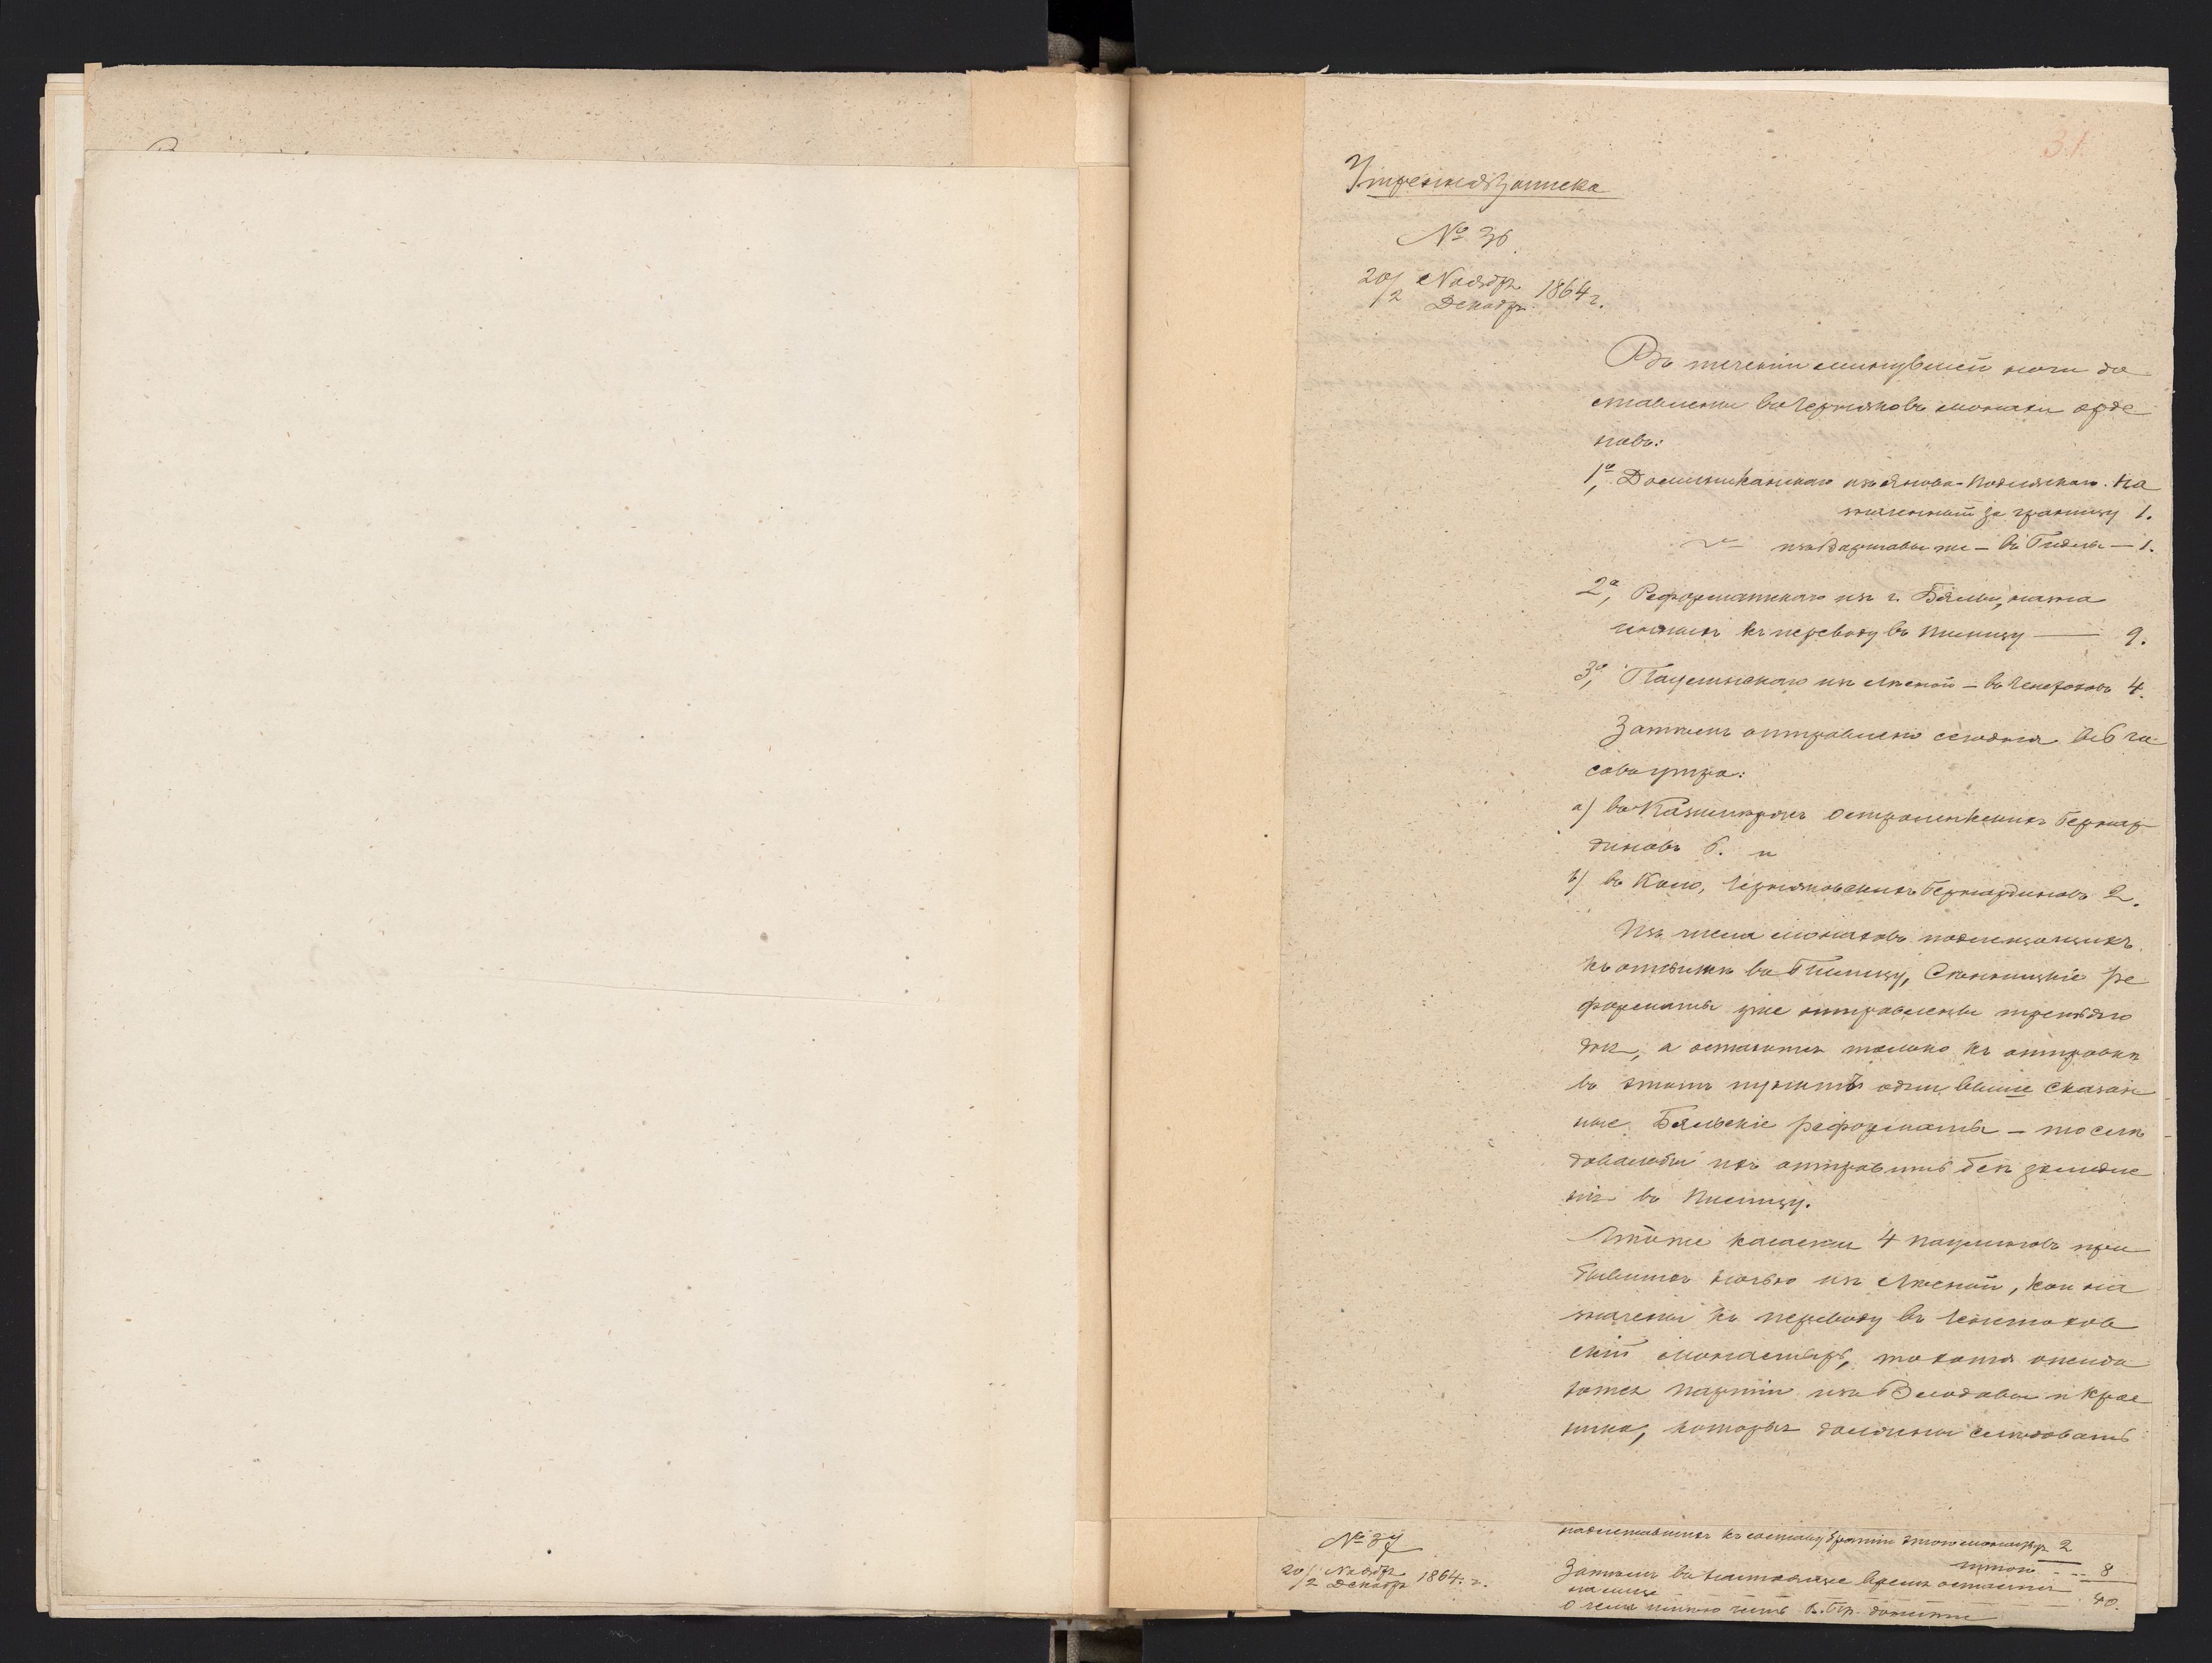 31.
Утренняя Записка
№ 36
20/2 Ноября/Декабр. 1864 г.
Въ теченіи минувшей ночи до
ставлены въ Черняковъ монахи орде
новъ:
1о, Доминиканскаго изъ Янова-Подлясскаго. На
значенный за границу 1.
изъ Варшавы же – въ Гидле — 1.
2о, Реформатскаго изъ г. Бялы, назна
ченныхъ къ переводу въ Пилицу — 9.
3о, Паулинскаго изъ Лесной – въ Ченстоховъ 4.
Затѣмъ отправлено сегодня въ 6 ча
совъ утра:
а) въ Казимиржъ Остроленкскихъ Бернар
диновъ 6. и
b) въ Коло, Черняковскихъ Бернардиновъ 2.
Изъ числа монаховъ подлежащихъ
къ отсылкѣ въ Пилицу, Сѣнницкіе ре
форматы уже отправлены третьяго
дня, а остаются только къ отправкѣ
въ этотъ пунктъ одни выше сказан
ные Бяльскіе реформаты – то слѣ
довало бы ихъ отправить безъ замедле
нія въ Пилицу.
Что же касается 4 паулиновъ при
бывшихъ ночью изъ Лесной, кои на
значены къ переводу въ Ченстохов
скій монастырь, то хотя ожида
ются партіи изъ Влодавы и Крас
ника, которыя должны слѣдовать
№ 37
20/2 Ноября/Декабря 1864. г.
къ составу братіи этого монастыря 2
итого - - - 8
Затѣмъ въ настоящее время остается
на лицо — 40.
О чемъ имѣю честь В. Пр. донести